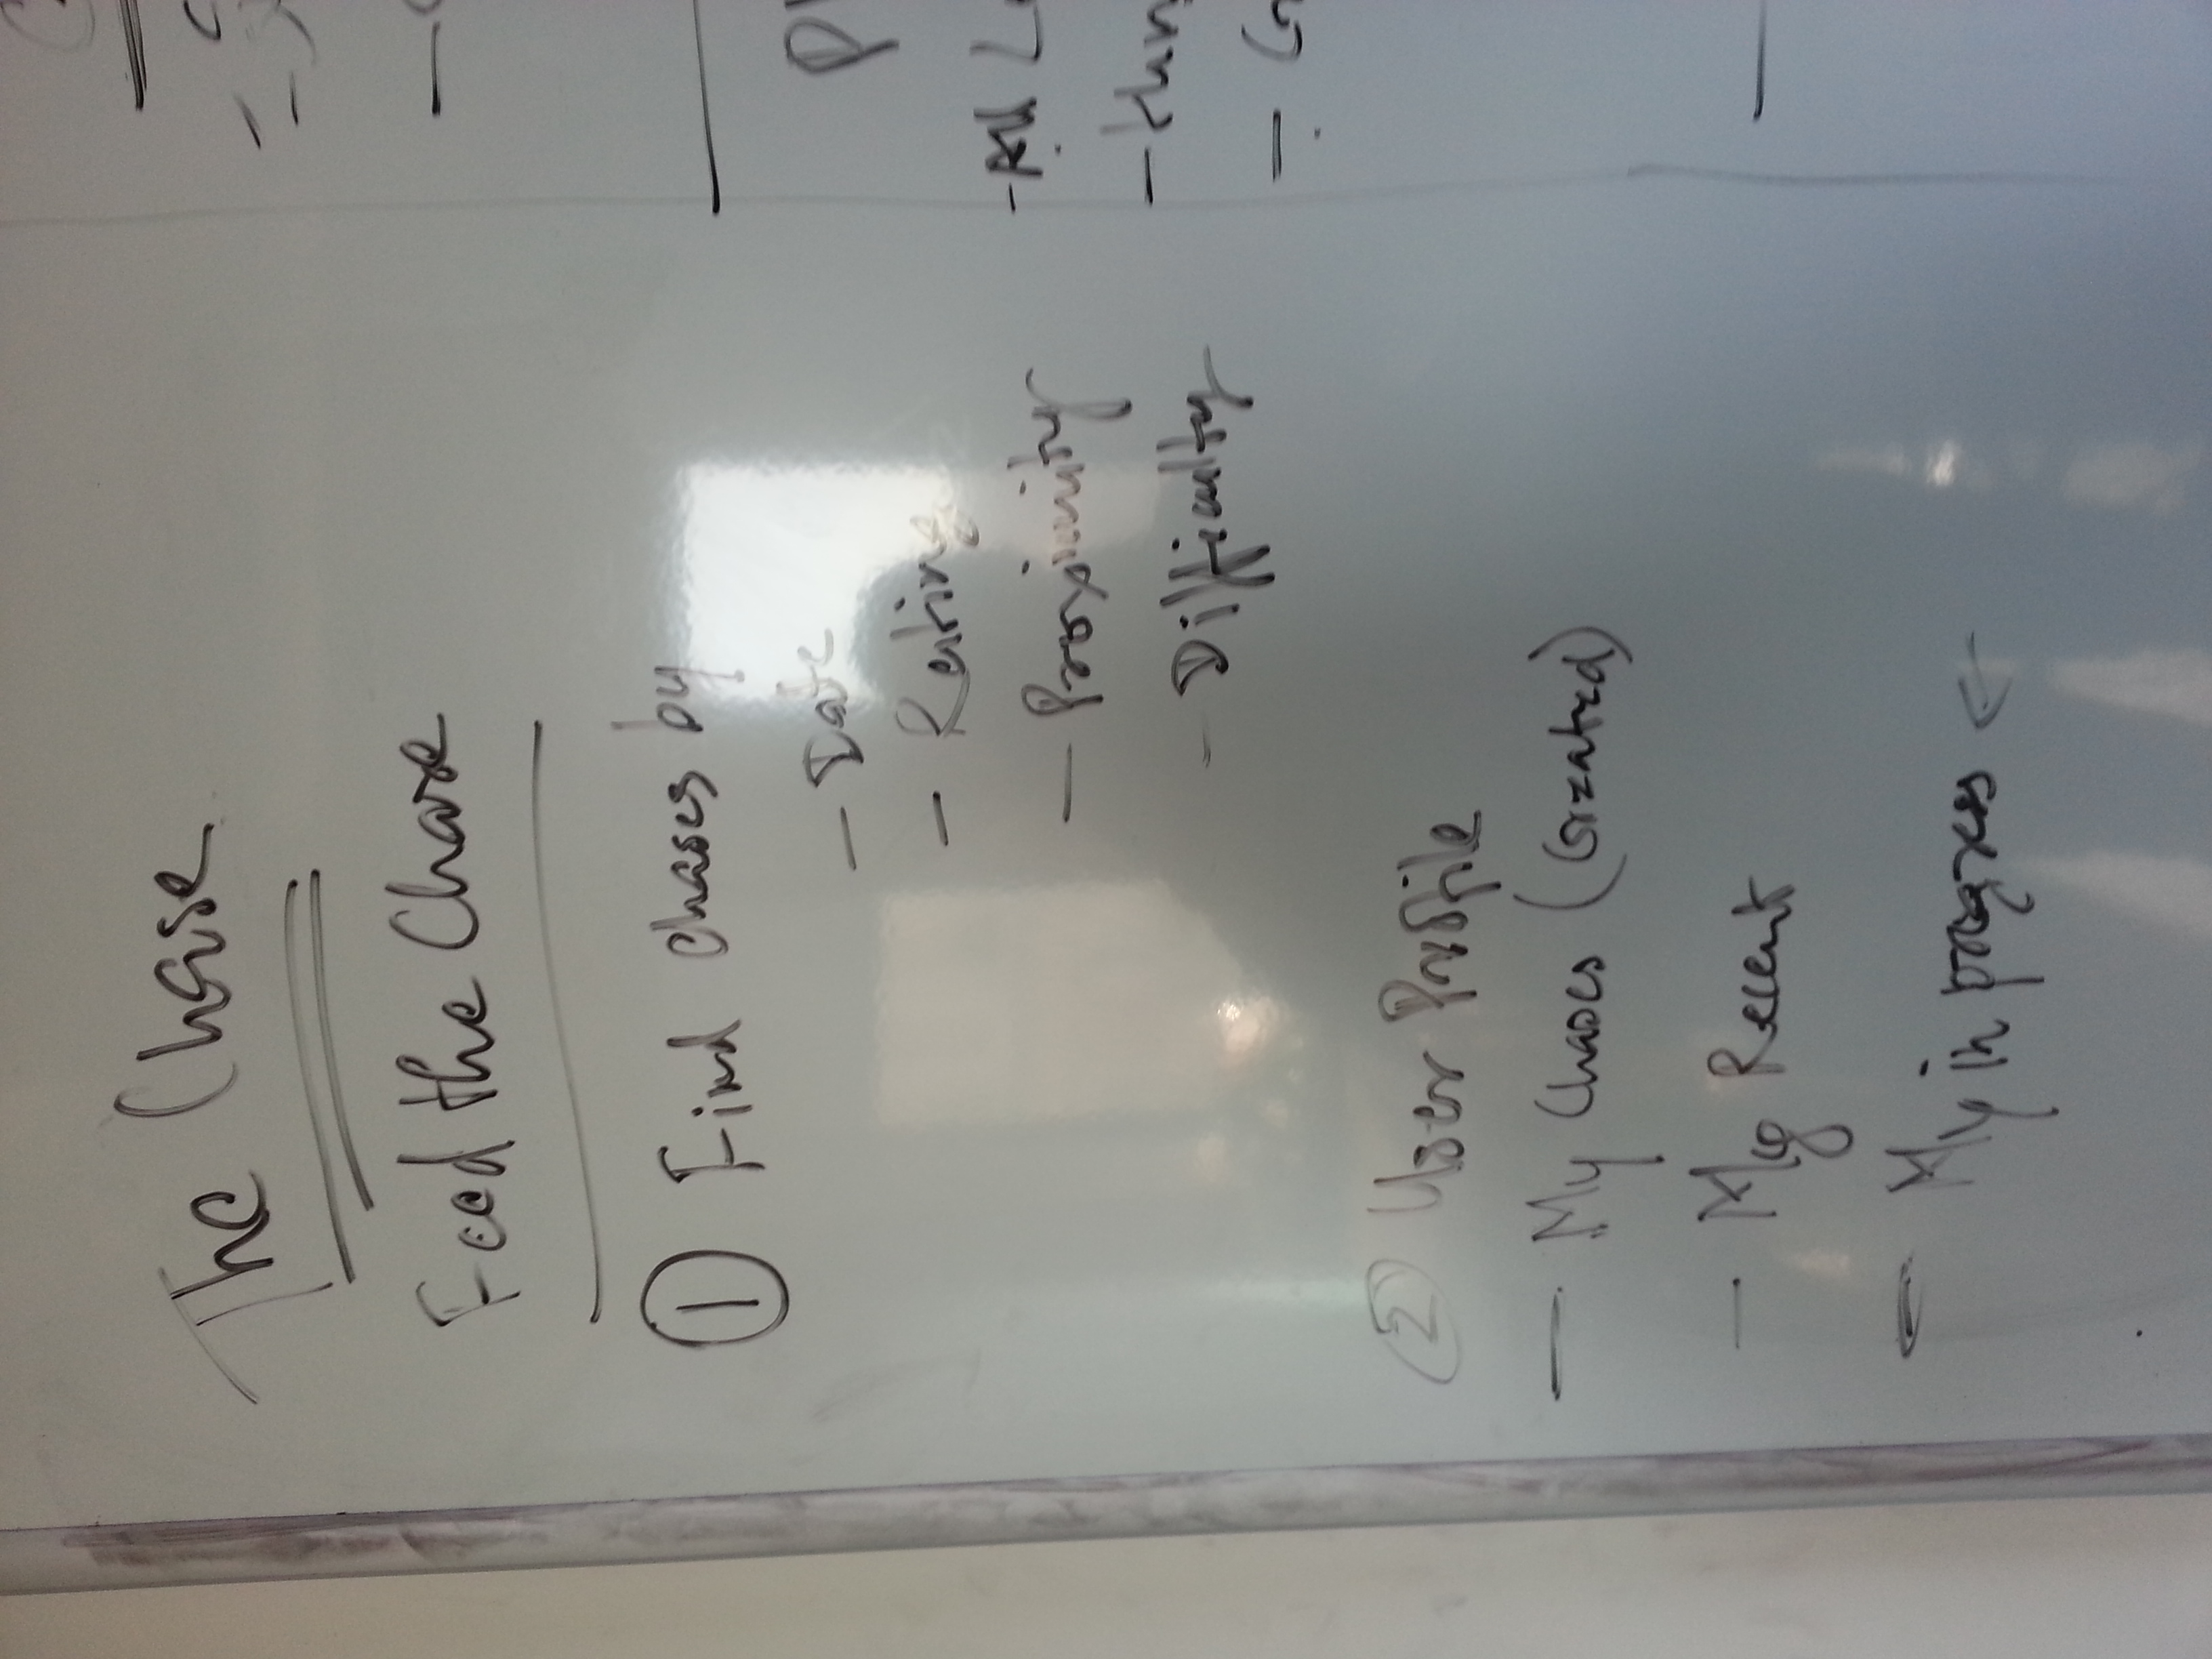 The Chase
Feed the Chase
① Find Chases by
— Date
— Rating
— Proximity
- Difficulty
② User Profile
— My Chases (Created)
— My Recent
— My in progress ←
- All